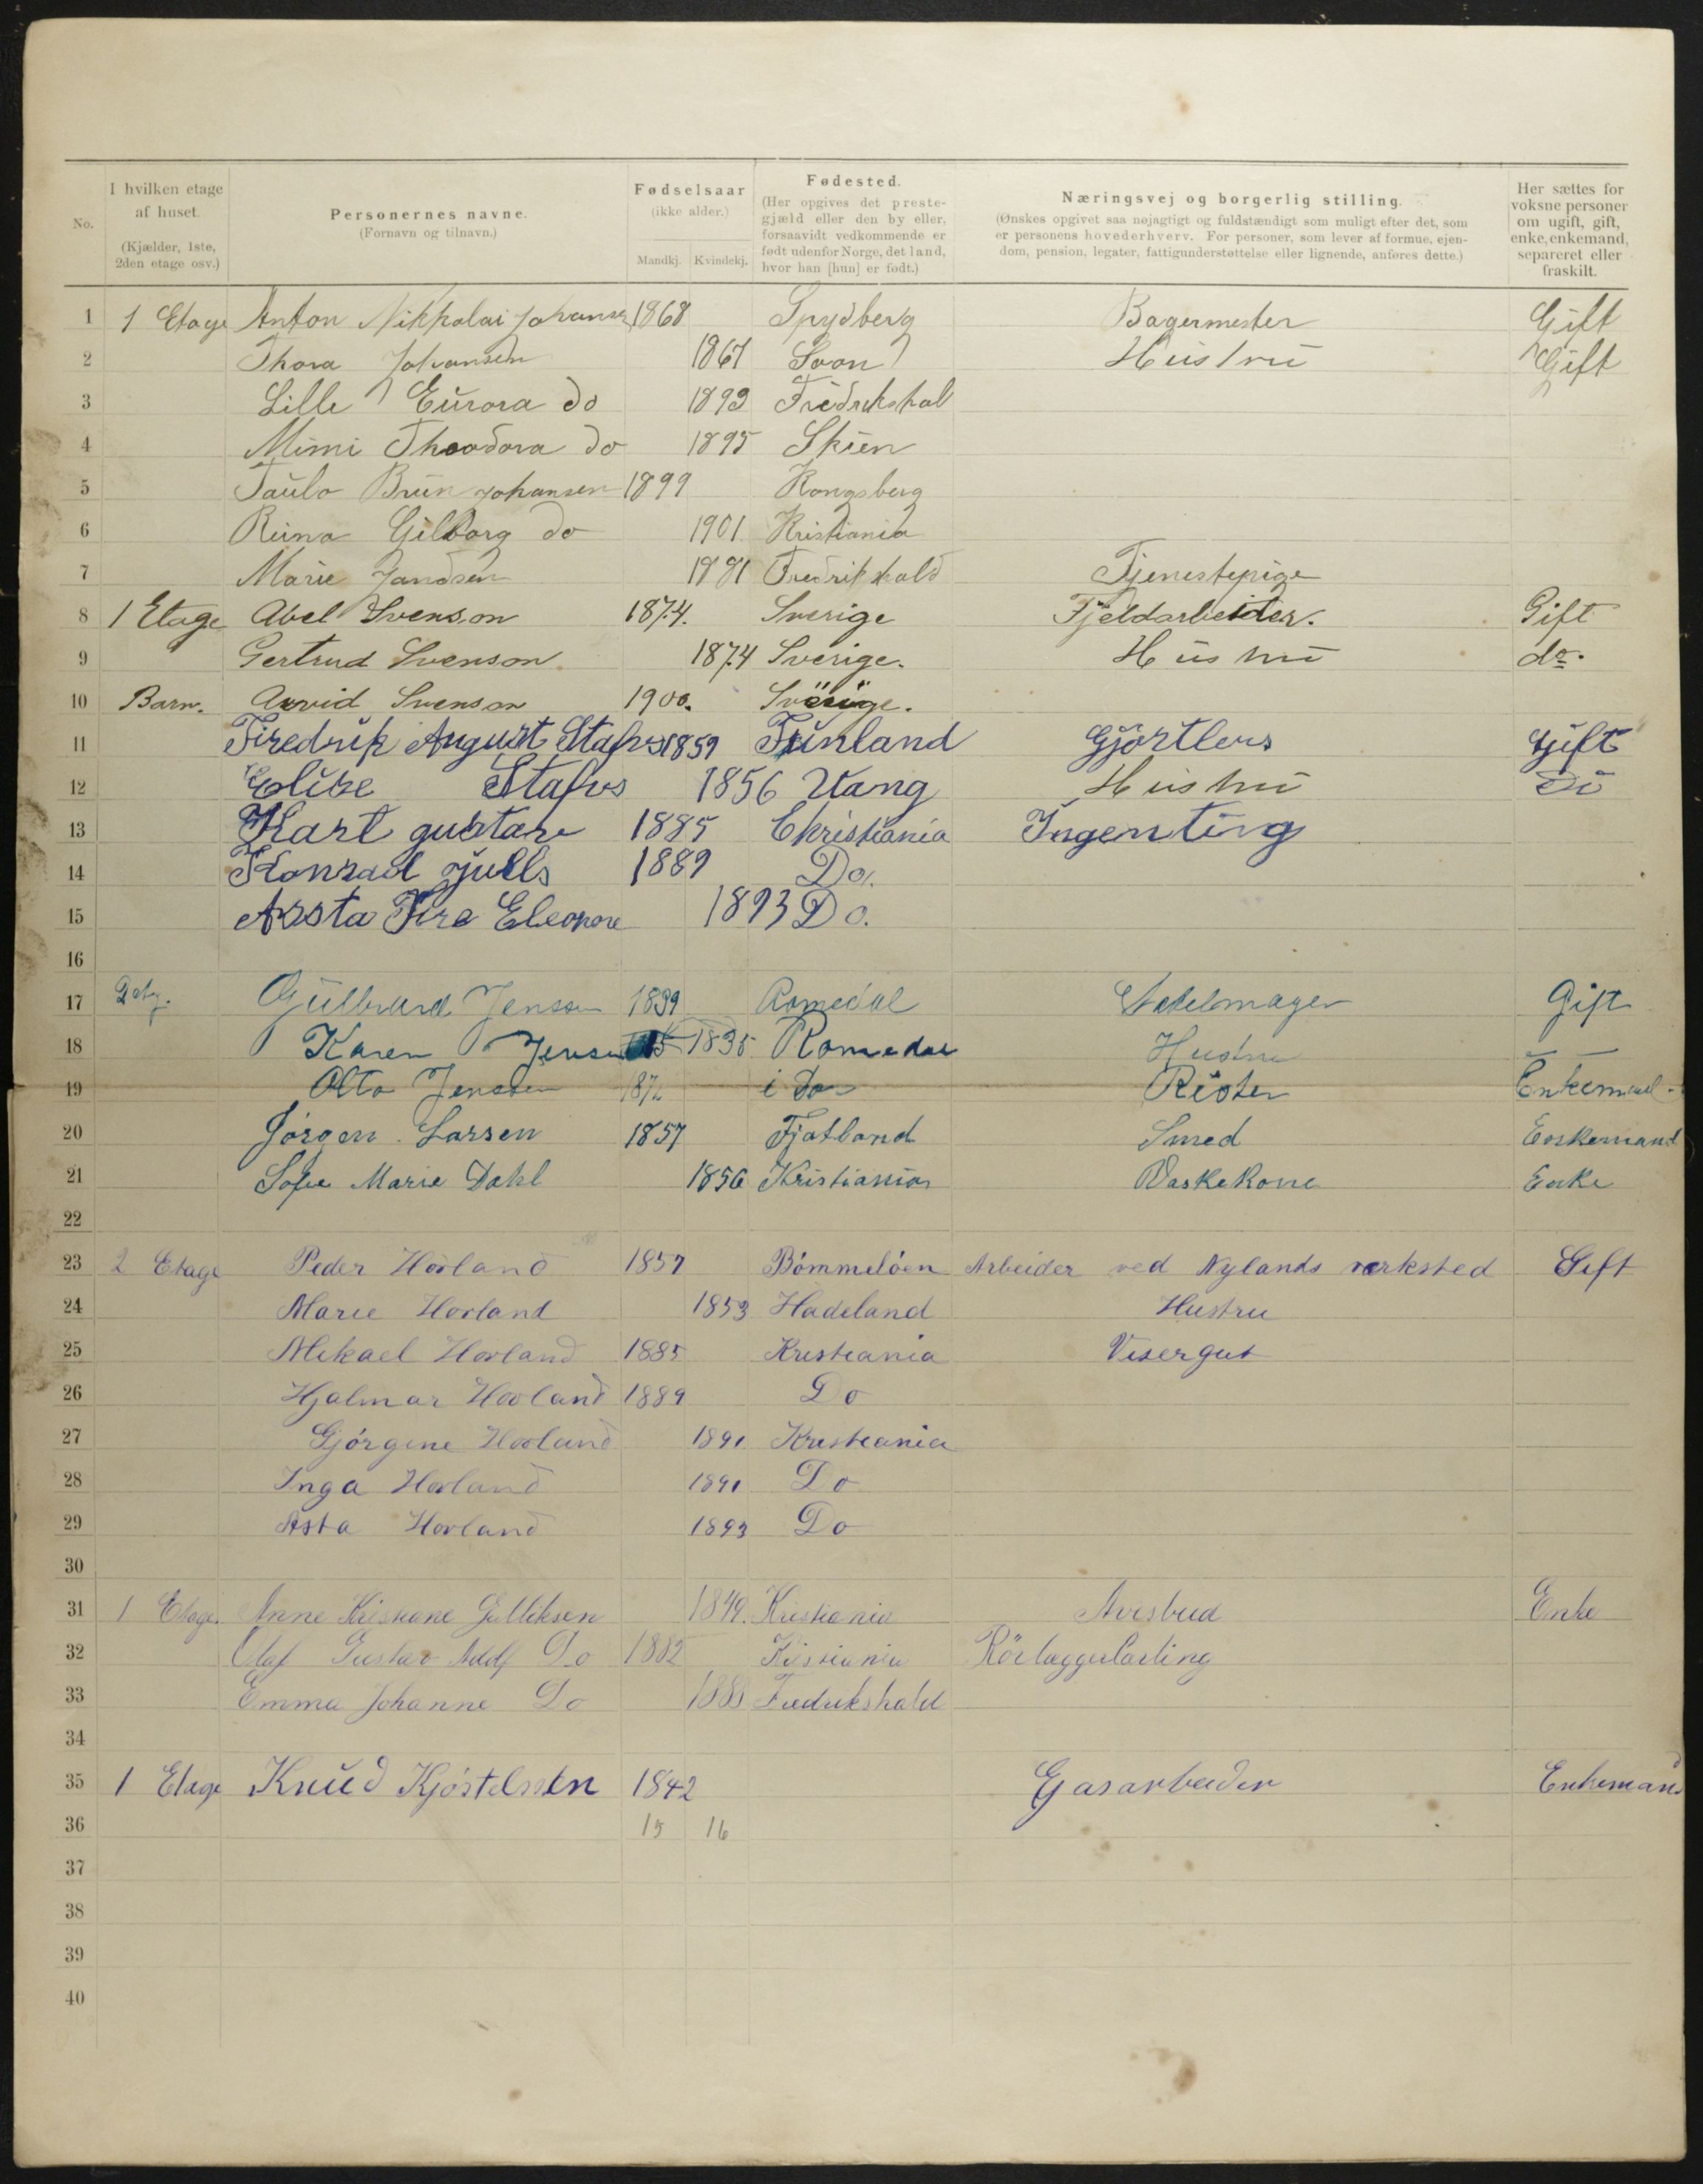 No.
I hvilken etage af huset.
(Kjælder, 1ste, 2den etage osv.)
Personernes navne.
(Fornavn og tilnavn.)
Fødselsaar
(ikke alder.)
Mandkj. Kvindekj.
Fødested.
(Her opgives det preste-
gjæld eller den by eller,
forsaavidt vedkommende er
født udenfor Norge, det land,
hvor han [hun] er født.)
Næringsvej og borgerlig stilling.
(Ønskes opgivet saa nøjagtigt og fuldstændigt som muligt efter det, som
er personens hovederhverv. For personer, som lever af formue, ejen-
dom, pension, legater, fattigunderstøttelse eller lignende, anføres dette.)
Her sættes for
voksne personer
om ugift, gift,
enke, enkemand,
separeret eller
fraskilt.
1 1 Etage Anton Nikkolai Johansen 1868 Spydberg Bagermester Gift
2 Thora Johansen 1867 Soon Hustru Gift
3 Lille Eurora do 1893 Fredrikshal
4 Mimi Theodora do 1895 Skien
5 Paulo Brun Johansen 1899 Kongsberg
6 Gilborg do 1901 Kristiania
7 Marie Jandsen 1881 Fredrikshald Tjenestepige
8 1 Etage Abel Svenson 1874. Sverige Fjeldarbeider. Gift
9 Gertrud Svenson 1874 Sverige. Hustru do.
10 Barn. Arvid Svenson 1900. Sverige.
11 Fredrik August 1859 Finland Gjørtlers Gift
12 Elise 1856 Vang Hustru Do
13 Karl gustav 1885 Christiania Ingenting
14 Konrad 1889 Do.
15 Eleonore 1893 Do.
16
17 2 etg. Gulbrand Jenssen 1839 Romedal Sadelmager Gift
18 Karen Jensen 1835 Romedal Hustru
19 Otto Jenssen i Do Enkemand
20 Jørgen Larsen 1857 Smed Enkemand
21 Sofie Marie Dahl 1856 Kristiania Vaskekone Enke
22
23 2 Etage Peder Hovland 1857 Bømmeløen Arbeider ved Nylands værksted Gift
24 Marie Hovland 1853 Hadeland Hustru
25 Mikael Hovland 1885 Kristiania Visergut
26 Hjalmar Hovland 1889 Do
27 Gjørgine Hovland 1891 Kristiania
28 Inga Hovland 1891 Do
29 Asta Hovland 1893 Do
30
31 1 Etage. Anne Kristiane Gulliksen 1849. Kristiania Avisbud Enke
32 Olaf Gustav Adolf Do 1882 Kristiania Rörlæggerlærling
33 Emma Johanne Do 1888 Fredrikshald
34
35 1 Etage Knud Kjøstelssen 1842 Gasarbeider Enkemand
36 15 16
37
38
39
40